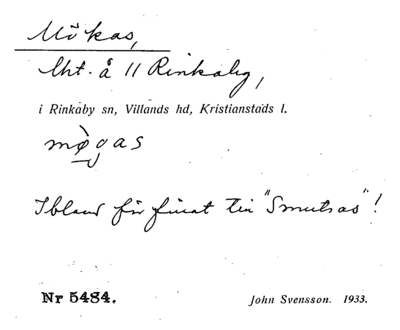 Mökas,
lht. å 11 Rinkaby,
i Rinkaby sn, Villands hd, Kristianstads l.
mø̀gas
Ibland för finat till "Smutsas"!
Nr 5484.
John Svensson. 1933.